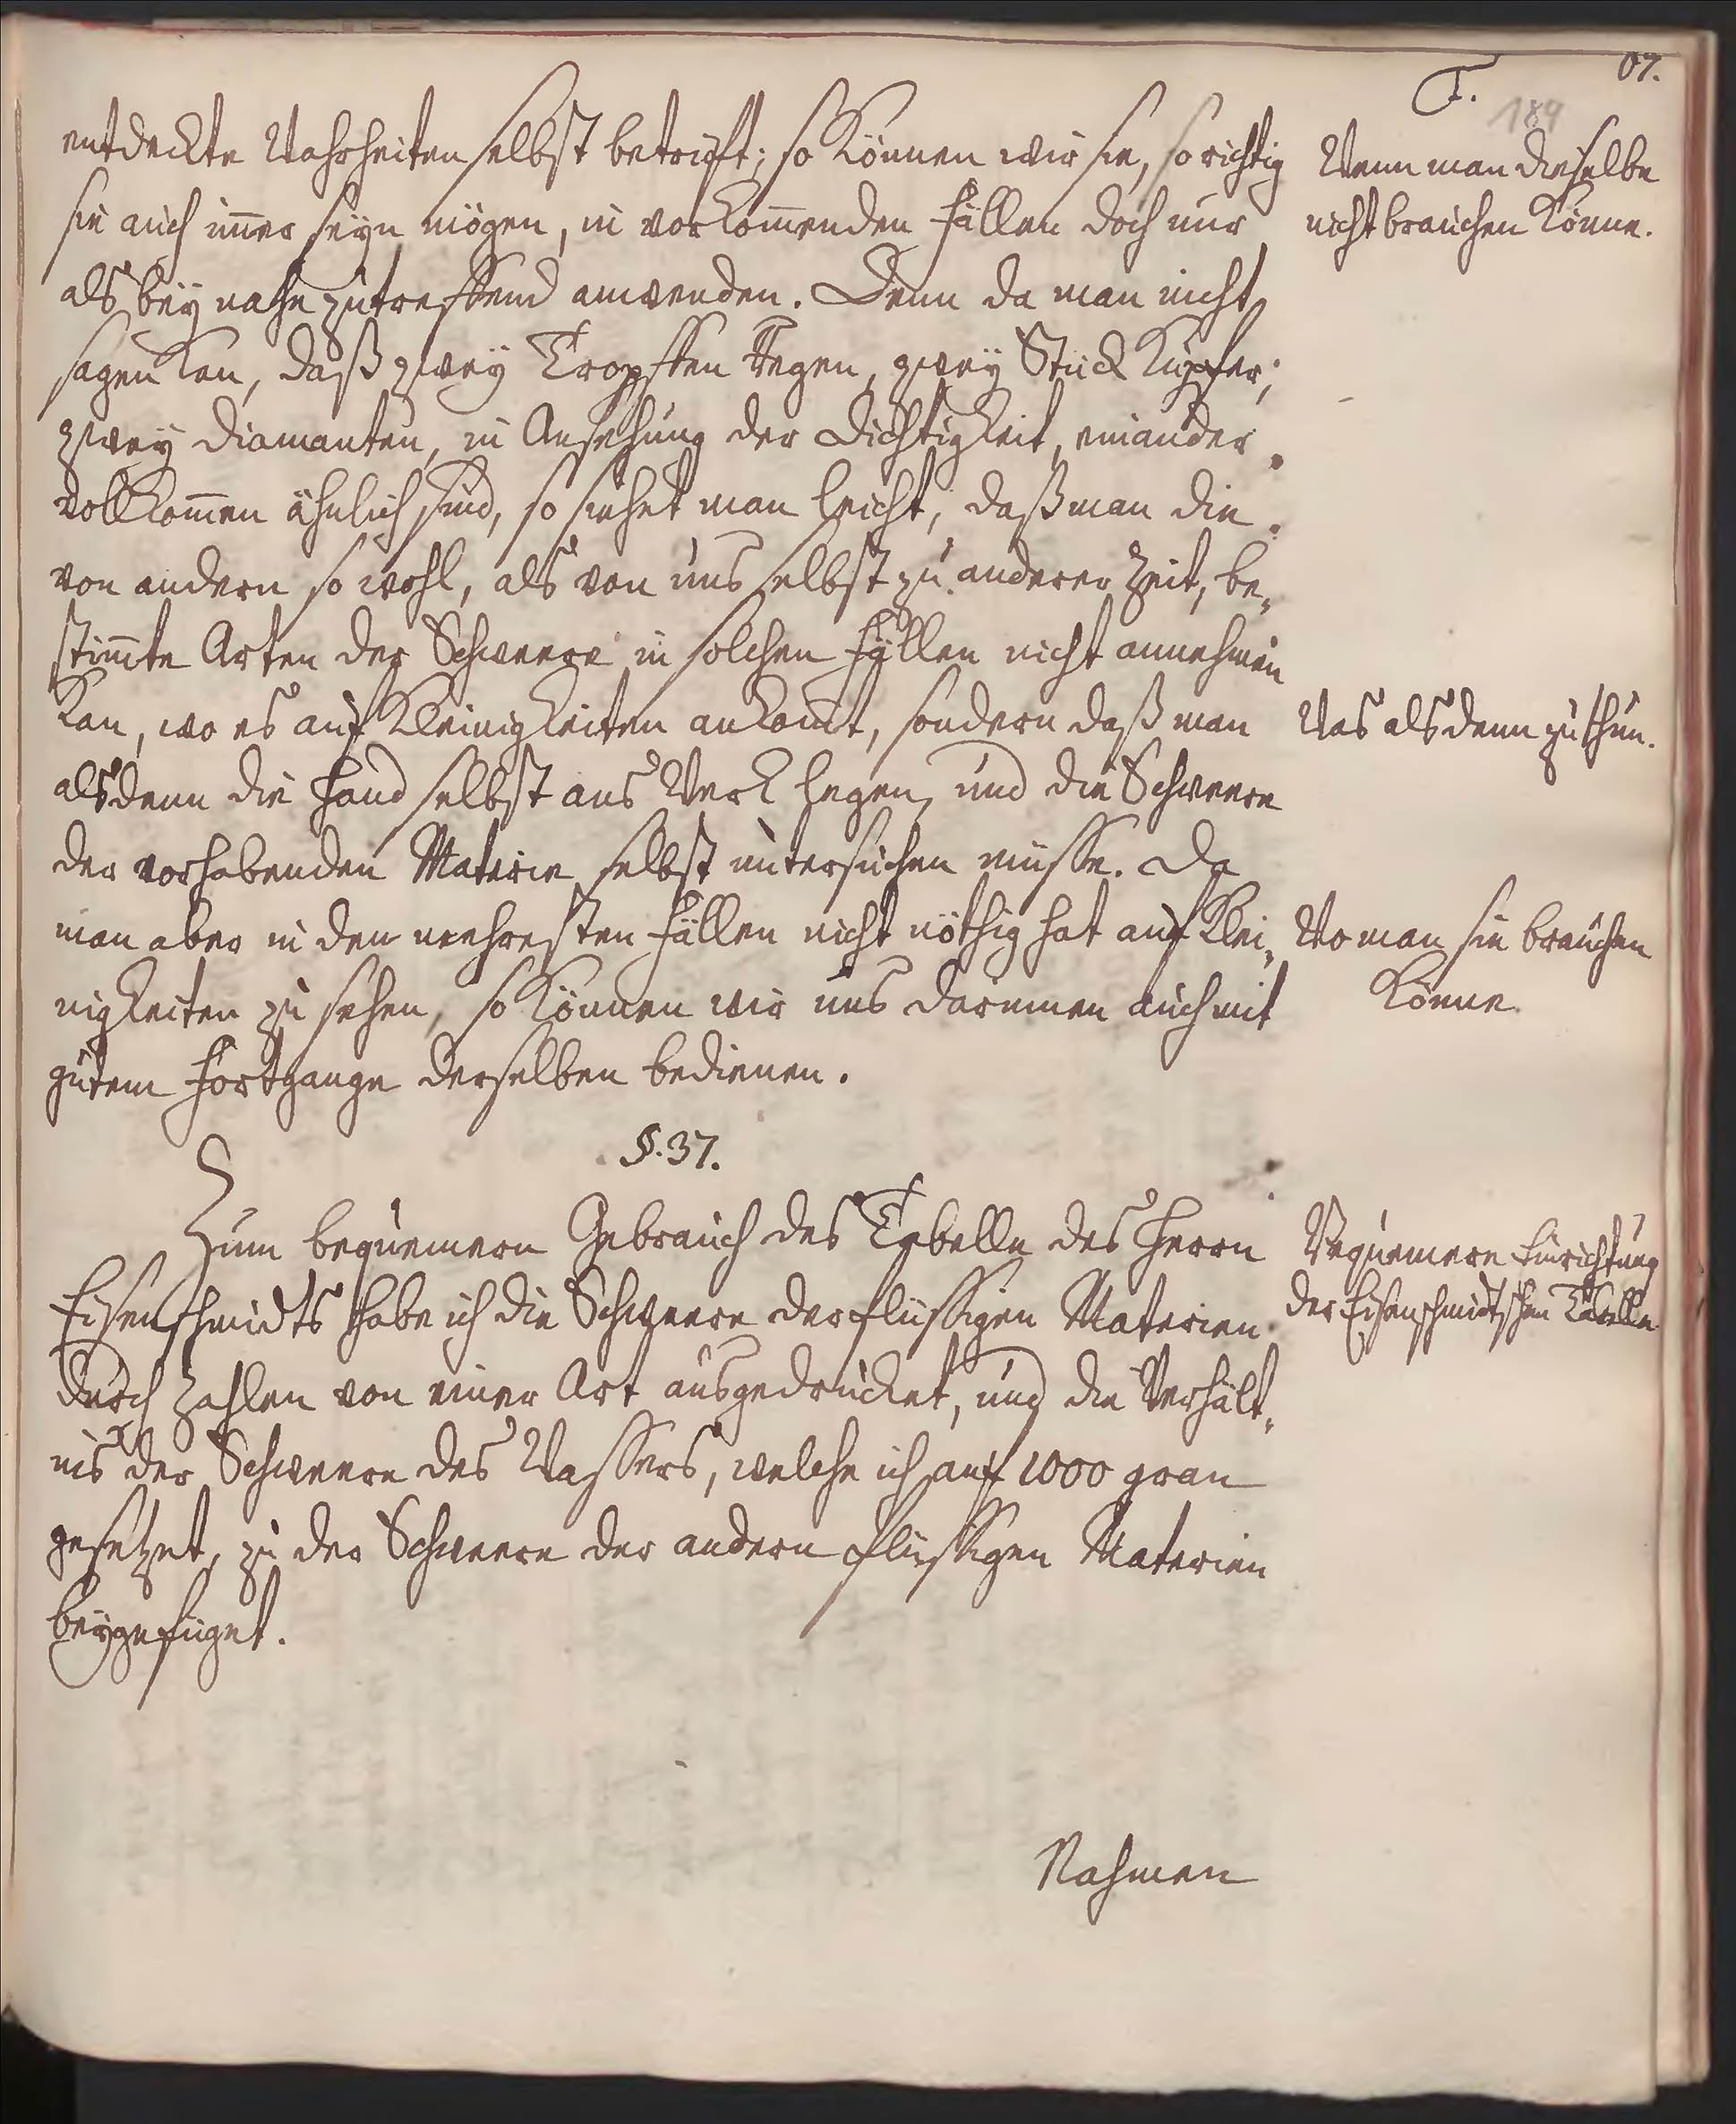 67.
T.
189
entdeckte Wahrheiten selbst betrifft; so können wir sie, so richtig
sie auch im̅er seyn mögen, in vorkom̅enden Fällen doch nur
als bey nahe zutreffend anwenden. Denn da man nicht
sagen kan, daß zwey Tropffen Regen, zwey Stück Kupfer,
zwey Diamanten, in Ansehung der Dichtigkeit, einander
vollkom̅en ähnlich sind, so siehet man leicht, daß man die
von andern so wohl, als von uns selbst zu anderer Zeit, be-
stim̅te Arten der Schweere in solchen Fällen nicht annehmen
kan, wo es auf Kleinigkeiten ankom̅t, sondern daß man
alsdenn die Hand selbst ans Werk legen, und die Schweere
der vorhabenden Materie selbst untersuchen müsse. Da
man aber in den mehresten Fällen nicht nöthig hat auf Klei-
nigkeiten zu sehen, so können wir uns darinnen auch mit
gutem Fortgange derselben bedienen.
Wenn man dieselbe
nicht brauchen könne.
Was alsdenn zu thun.
Wo man sie brauchen
könne.
§. 37.
Zum bequemern Gebrauch des Tabelle des Herrn
Eisenschmidts habe ich die Schweere der flüssigen Materien
durch Zahlen von einer Art ausgedrücket, und die Verhält-
nis der Schweere des Wassers, welche ich auf 1000 gran
gesetzet, zu der Schweere der andern flüssigen Materien
beygefüget.
Bequemere Einrichtung
der Eisenschmidtschen Tabelle
Nahmen